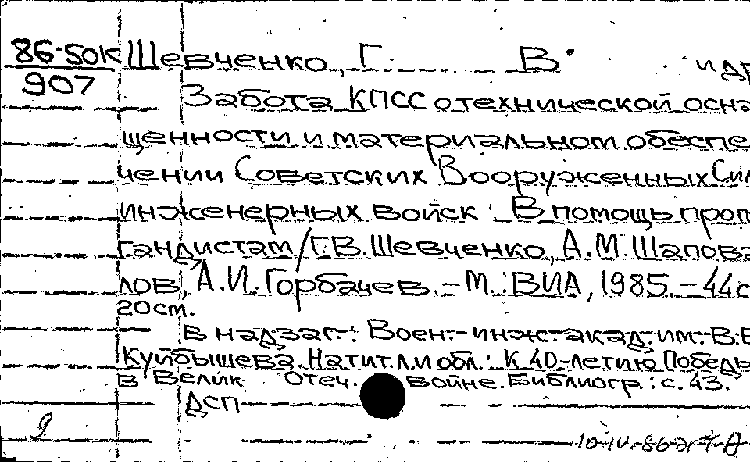 86-50к Шевченко, Г. В. и др
907
Забота КПСС о технической осна
щенности и материальном обеспе
чении Советских Вооруженных Сил
инженерных войск. В помощь проп
гандистам/Г.В. Шевченко, А.М. Шапова
лов, А.И. Горбачев. – М.: ВИА, 1985. – 44с
20см.
В надзаг.: Воен.-инж. акад. им. В.В
Куйбышева. На тит. л. и обл.: К 40-летию Победы
в Велик. Отеч. войне. Библиогр.: с. 43.
ДСП